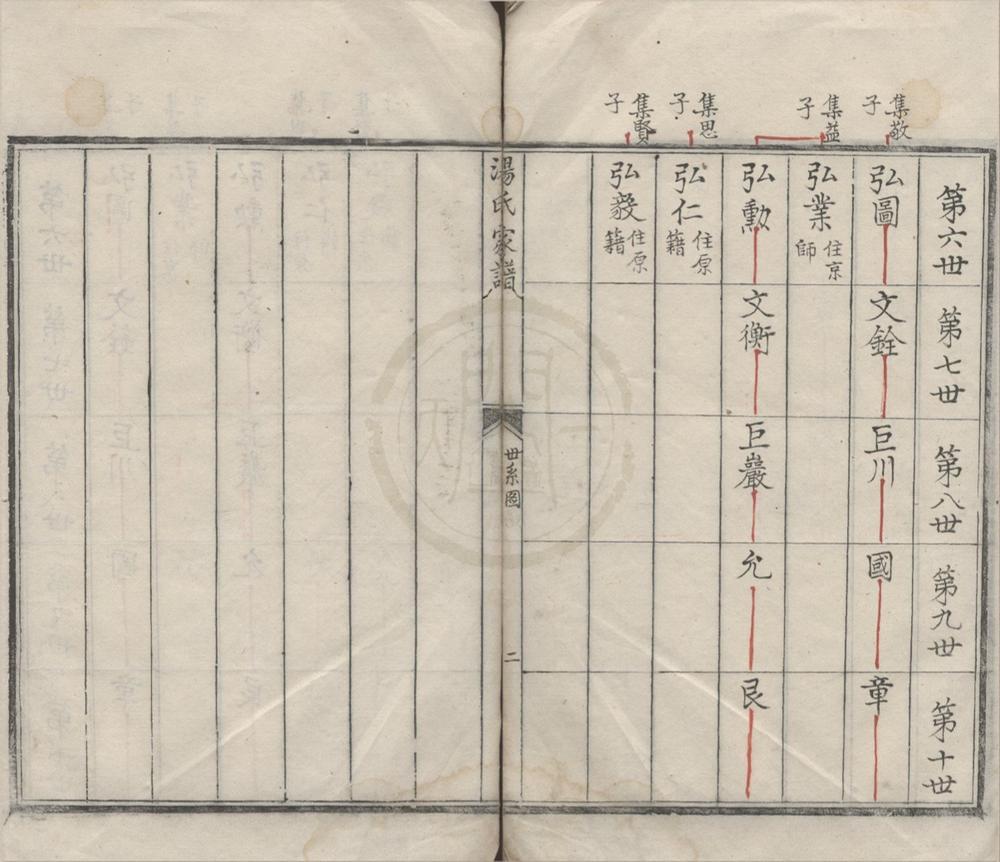 第六世
第七世
第八世
第九世
第十世
集敬
子
弘圖
文銓
巨川
國
章
集益
子
弘業
住京
師
弘勳
文衡
巨巖
允
艮
集思
子
弘仁
住原
籍
集賢
子
弘毅
住原
籍
湯氏家譜
世系圖
二